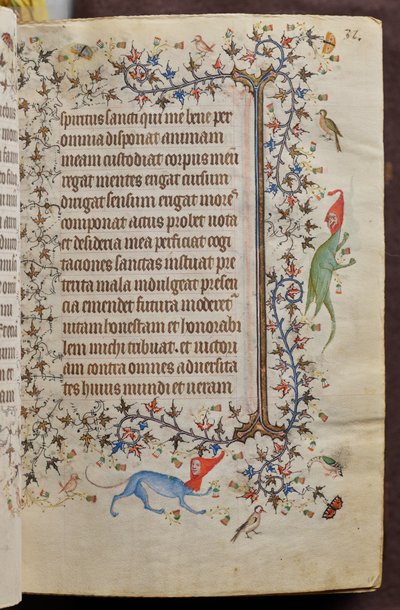 32.
spiritus sancti qui me bene per
omnia disponat animam
meam custodiat corpus meū
regat mentes erigat cursum
dirigat sensum erigat moreˢ
componat actus probet uota
et desideria mea perficiat cogi
taciones sanctas instruat pre
terita mala indulgeat presen
cia emendet futura moderetᷣ
uitam honestam et honorabi
lem michi tribuat. et uictori
am contra omnes aduersita
tes huius mundi et ueram